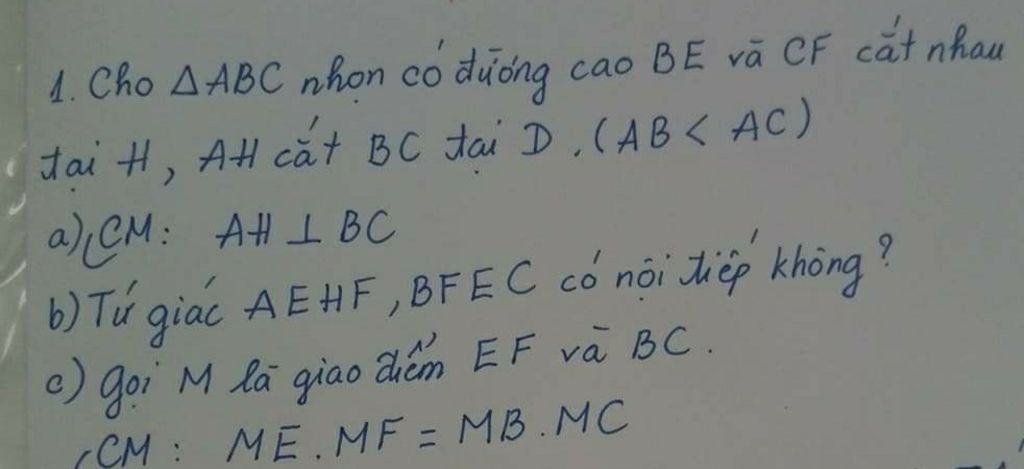 1. Cho ΔABC nhọn có đường cao BE và CF cắt nhau
tại H, AH cắt BC tại D. (AB < AC)
a) CM: AH ⊥ BC
b) Tứ giác AEHF, BFEC có nội tiếp không?
c) gọi M là giao điểm EF và BC.
CM: ME.MF = MB.MC